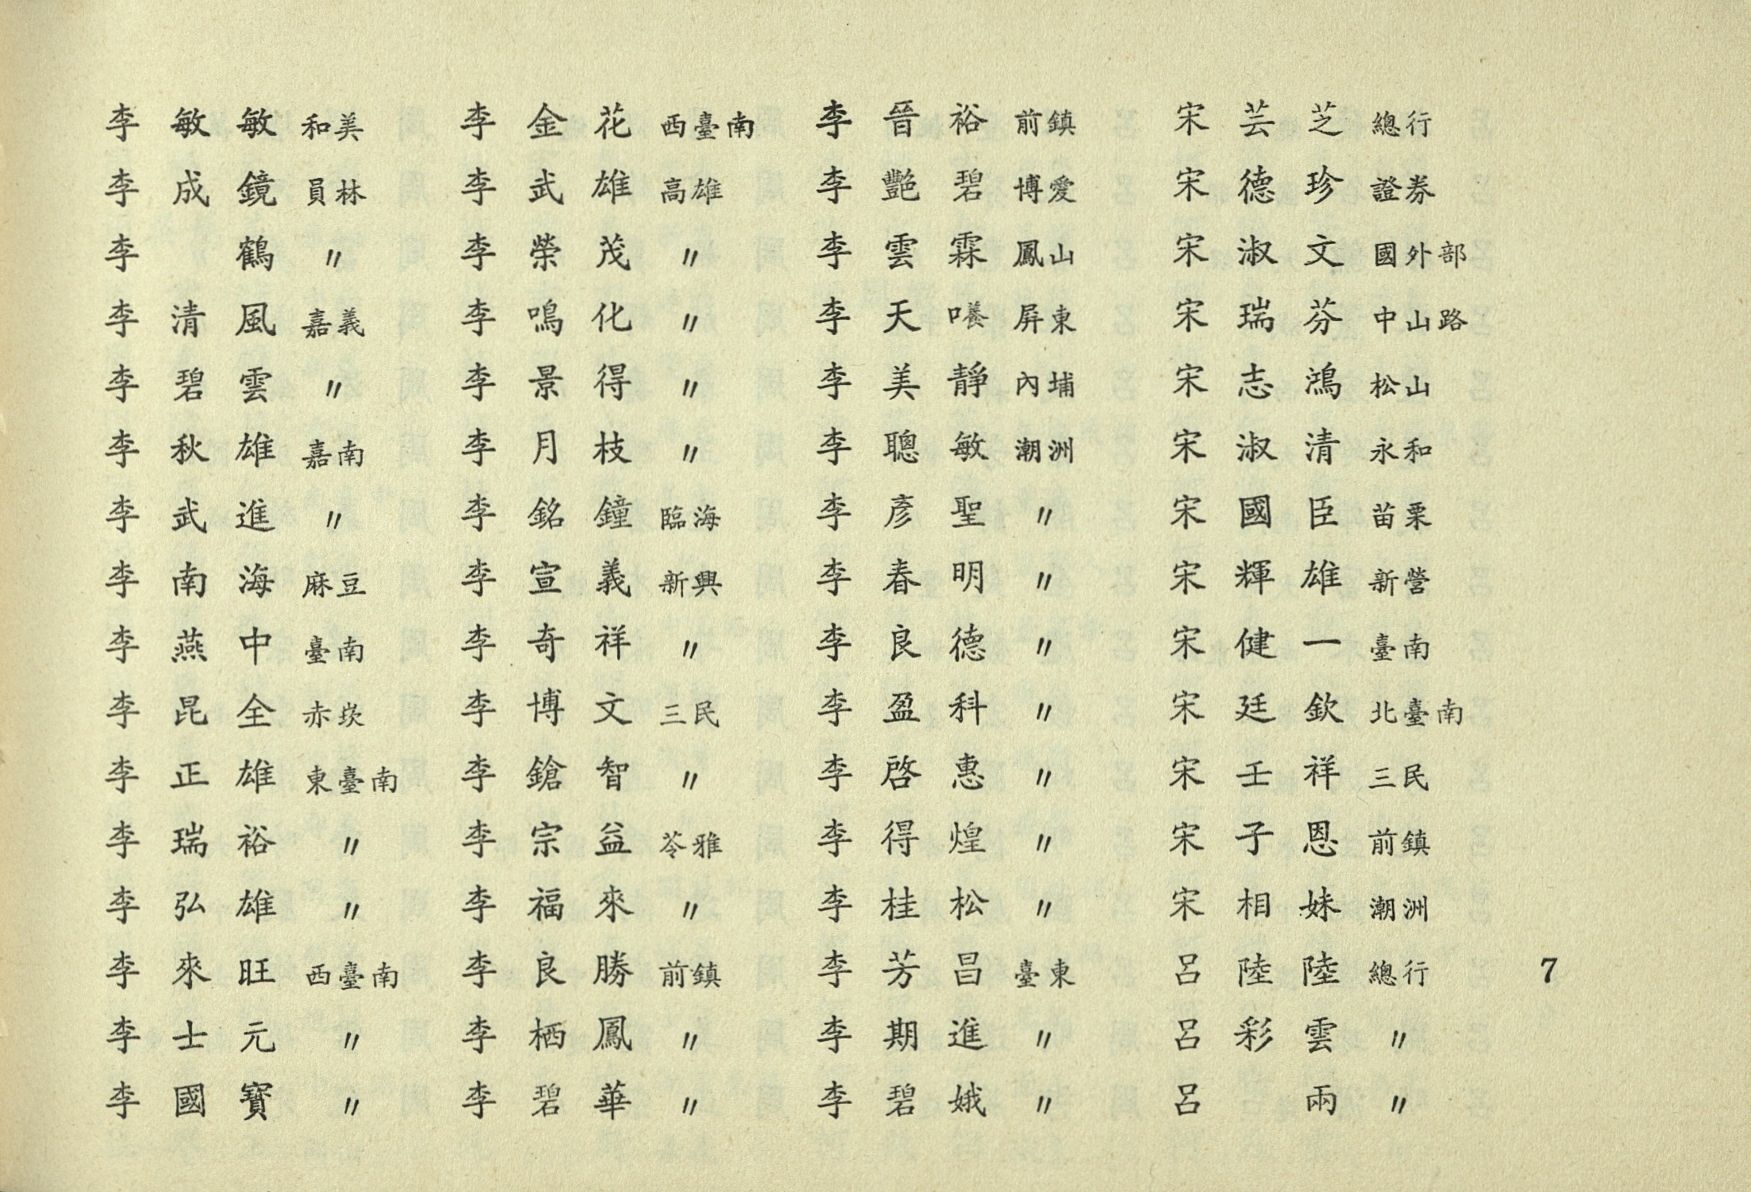 李敏敏 和美
李成鏡 員林
李鶴 〃
李清風 嘉義
李碧雲 〃
李秋雄 嘉南
李武進 〃
李南海 麻豆
李燕中 臺南
李昆全 赤崁
李正雄 東臺南
李瑞裕 〃
李弘雄 〃
李來旺 西臺南
李士元 〃
李國寶 〃
李金花 西臺南
李武雄 高雄
李榮茂 〃
李鳴化 〃
李景得 〃
李月枝 〃
李銘鐘 臨海
李宣義 新興
李奇祥 〃
李博文 三民
李鎗智 〃
李宗益 苓雅
李福來 〃
李良勝 前鎮
李栖鳳 〃
李碧華 〃
李晉裕 前鎮
李艷碧 博愛
李雲霖 鳳山
李天 屏東
李美靜 內埔
李聰敏 潮洲
李彥聖 〃
李春明 〃
李良德 〃
李盈科 〃
李啓惠 〃
李得煌 〃
李桂松 〃
李芳昌 臺東
李期進 〃
李碧娥 〃
宋芸芝 總行
宋德珍 證券
宋淑文 國外部
宋瑞芬 中山路
宋志鴻 松山
宋淑清 永和
宋國臣 苗栗
宋輝雄 新營
宋健一 臺南
宋廷欽 北臺南
宋壬祥 三民
宋子恩 前鎮
宋相妹 潮洲
呂陸陸 總行
呂彩雲 〃
呂兩 〃
7